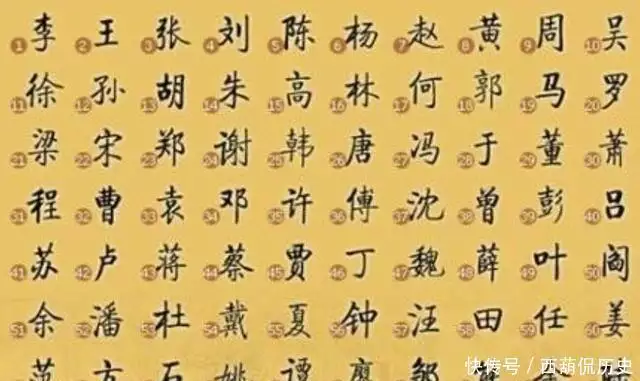 1 李 2 王 3 张 4 刘 5 陈 6 杨 7 赵 8 黄 9 周 10 吴
11 徐 12 孙 13 胡 14 朱 15 高 16 林 17 何 18 郭 19 马 20 罗
21 梁 22 宋 23 郑 24 谢 25 韩 26 唐 27 冯 28 于 29 董 30 萧
31 程 32 曹 33 袁 34 邓 35 许 36 傅 37 沈 38 曾 39 彭 40 吕
41 苏 42 卢 43 蒋 44 蔡 45 贾 46 丁 47 魏 48 薛 49 叶 50 阎
51 余 52 潘 53 杜 54 戴 55 夏 56 钟 57 汪 58 田 59 任 60 姜
方 石 姚 谭 廖 邹
快传号 / 西葫侃历史